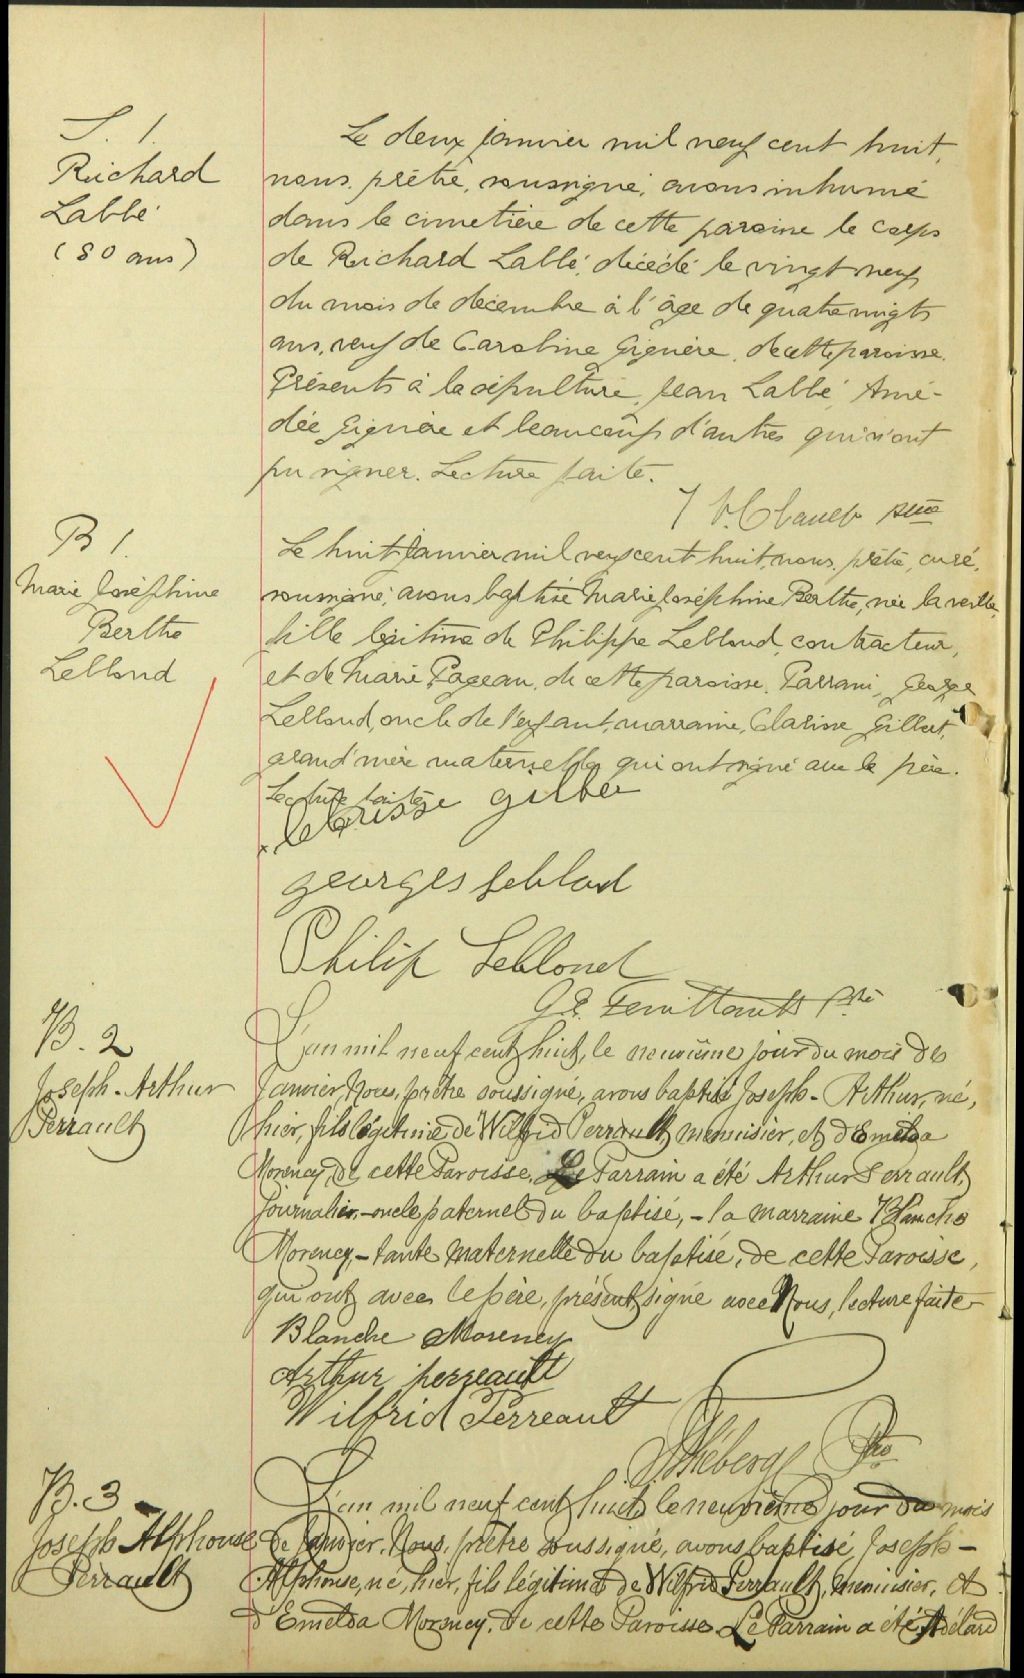 S. 1.
Richard
Labbé
(80 ans)
Le deux janvier mil neuf cent huit,
nous, prêtre, soussigné, avons inhumé
dans le cimetière de cette paroisse le corps
de Richard Labbé, décédé le vingt neuf
du mois de décembre à l'âge de quatre vingts
ans, veuf de Caroline Giguère, de cette paroisse.
Présents à la sépulture, Jean Labbé, Amé-
dée Giguère et beaucoup d'autres qui n'ont
pu signer. Lecture faite.
ptre
B 1.
Marie Joséphine
Berthe
Leblond
Le huit janvier mil neuf cent huit, nous, prêtre, curé,
soussigné, avons baptisé Marie Joséphine Berthe, née la veille,
fille légitime de Philippe Leblond, contracteur,
et de Marie Pageau, de cette paroisse. Parrain, George
Leblond, oncle de l'enfant, marraine, Clarisse Gilbert,
grand'mère maternelle qui ont signé avec le père.
Lecture faite.
georges Leblond
Philip Leblond
Ptre
B. 2
Joseph-Arthur
Perrault
L'an mil neuf cent huit, le neuvième jour du mois de
Janvier, Nous, prêtre soussigné, avons baptisé Joseph-Arthur, né,
hier, fils légitime de Wilfrid Perrault, menuisier, et d'Emelda
Morency, de cette Paroisse. Le Parrain a été Arthur Perrault,
journalier,-oncle paternel du baptisé,-la marraine Blanche
Morency,-tante maternelle du baptisé, de cette Paroisse,
qui ont avec le père, présent, signé avec Nous, lecture faite-
Blanche Morency
Arthur perreault
Wilfrid Perreault
Théberge Ptre
B. 3
Joseph Alphonse
Perrault
L'an mil neuf cent huit, le neuvième jour du mois
de Janvier, Nous, prêtre soussigné, avons baptisé Joseph-
Alphonse, né, hier, fils légitime de Wilfrid Perrault, menuisier, et
d'Emelda Morency, de cette Paroisse. Le Parrain a été Adélard